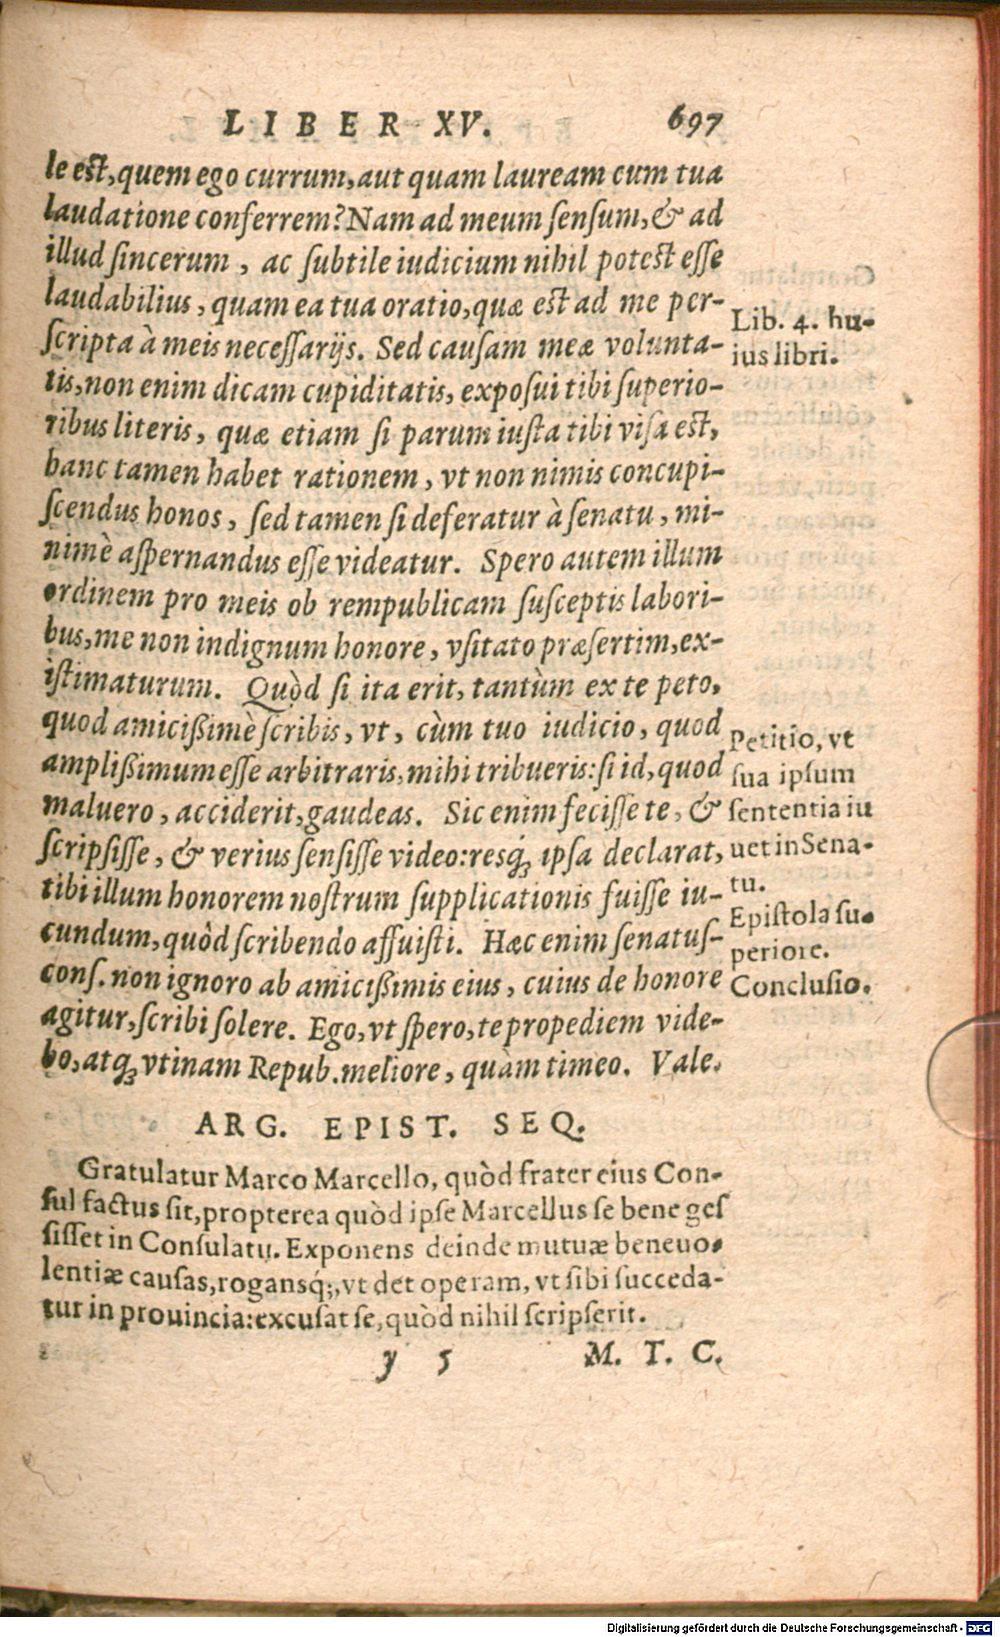 LIBER XV. 697
le est, quem ego currum, aut quam lauream cum tua
laudatione conferrem? Nam ad meum sensum, & ad
illud sincerum, ac subtile iudicium nihil potest esse
laudabilius, quam ea tua oratio, quæ est ad me per-
scripta à meis necessarijs. Sed causam meæ volunta-
tis, non enim dicam cupiditatis, exposui tibi superio-
ribus literis, quæ etiam si parum iusta tibi visa est,
hanc tamen habet rationem, vt non nimis concupi-
scendus honos, sed tamen si deferatur à senatu, mi-
nimè aspernandus esse videatur. Spero autem illum
ordinem pro meis ob rempublicam susceptis labori-
bus, me non indignum honore, vsitato præsertim, ex-
istimaturum. Quòd si ita erit, tantùm ex te peto,
quod amicißimè scribis, vt, cùm tuo iudicio, quod
amplißimum esse arbitraris, mihi tribueris: si id, quod
maluero, acciderit, gaudeas. Sic enim fecisse te, &
scripsisse, & verius sensisse video: resq́; ipsa declarat,
tibi illum honorem nostrum supplicationis fuisse iu-
cundum, quòd scribendo affuisti. Hæc enim senatus-
cons. non ignoro ab amicißimis eius, cuius de honore
agitur, scribi solere. Ego, vt spero, te propediem vide-
bo, atq; vtinam Repub. meliore, quàm timeo. Vale.
Lib. 4. hu-
ius libri.
Petitio, vt
sua ipsum
sententia iu
uet in Sena-
tu.
Epistola su-
periore.
Conclusio.
ARG. EPIST. SEQ.
Gratulatur Marco Marcello, quòd frater eius Con-
sul factus sit, propterea quòd ipse Marcellus se bene ges
sisset in Consulatu. Exponens deinde mutuæ beneuo-
lentiæ causas, rogansq́;, vt det operam, vt sibi succeda-
tur in prouincia: excusat se, quòd nihil scripserit.
y 5 M. T. C.
Digitalisierung gefördert durch die Deutsche Forschungsgemeinschaft - DFG